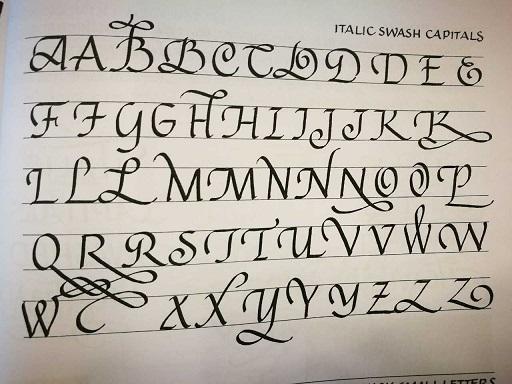 ITALIC SWASH CAPITALS
A A B B C C D D D E E
F F G G H H I I J J K K
L L L M M N N N O O P
Q R R S T T U V V W W
W C X X Y Y Y Z Z Z
SMALL LETTERS